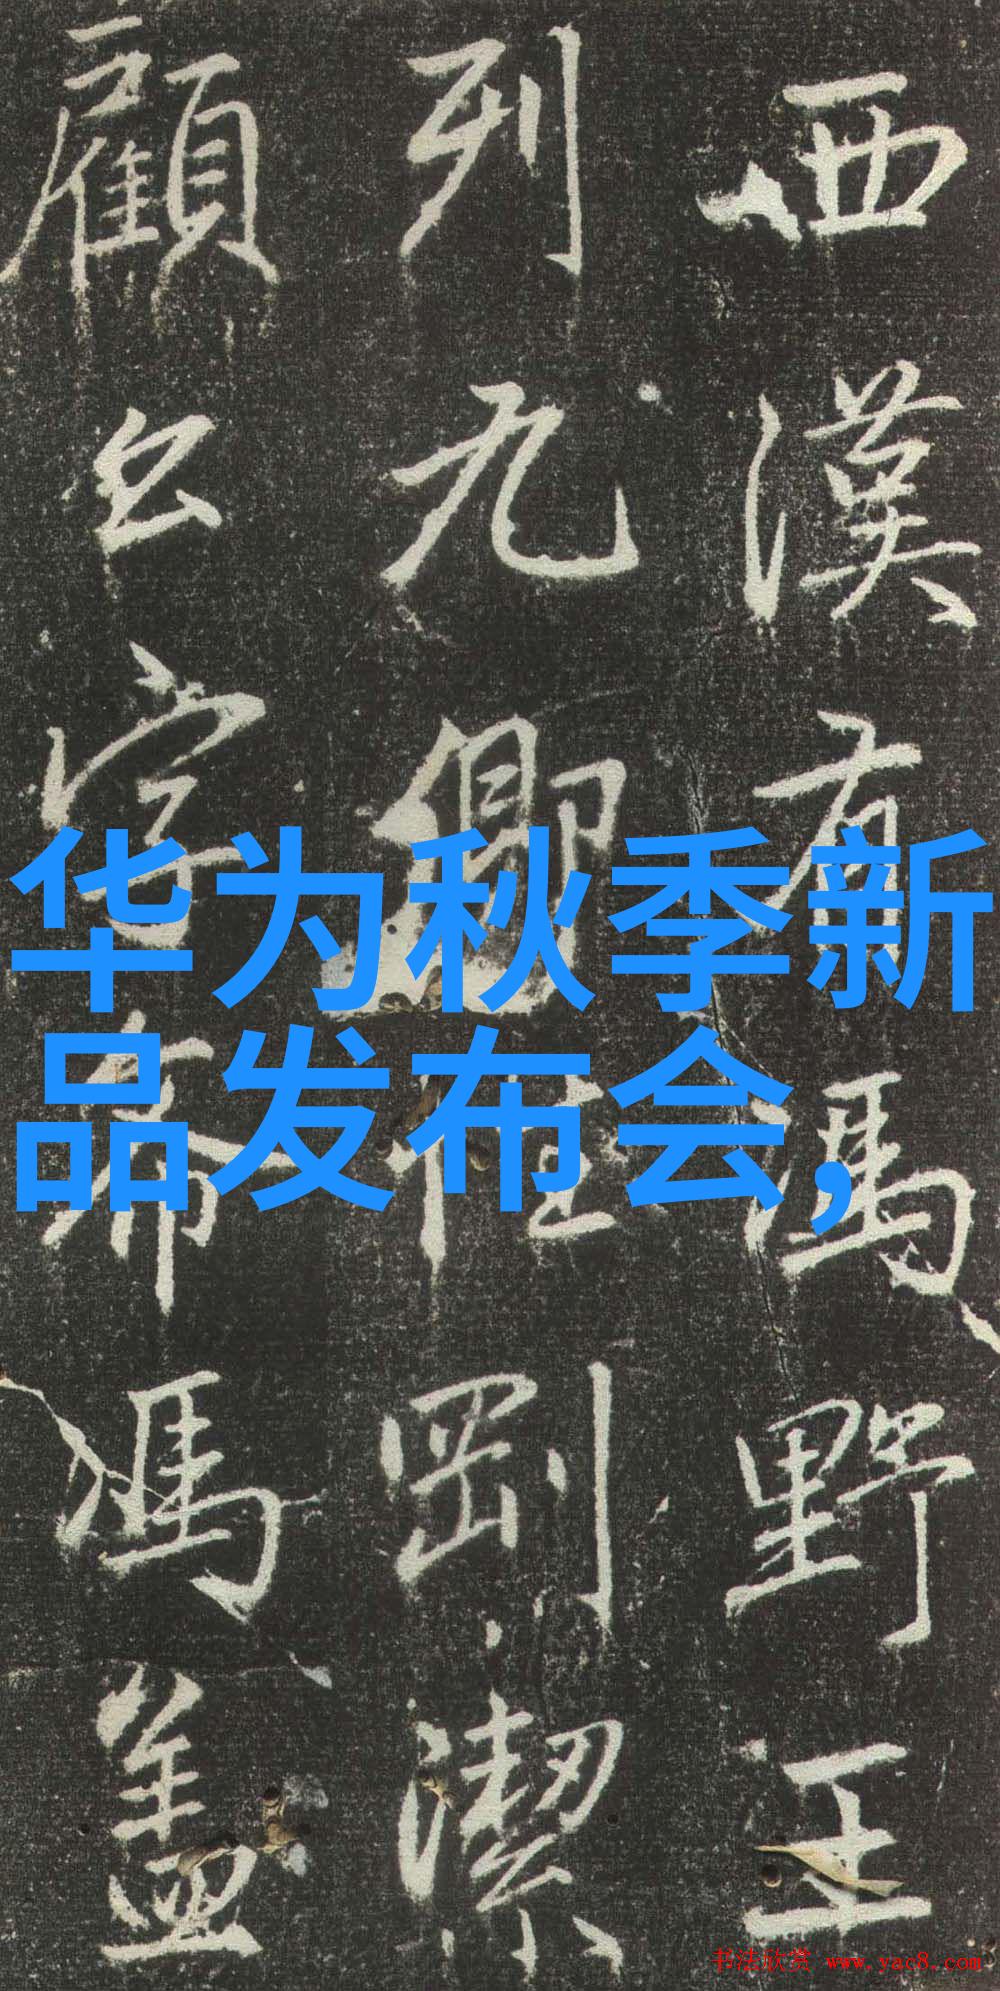 西漢有馮野王
列九卿性剛潔
顧公字希馮蓋
华为秋季新
品发布会,
书法欣赏 www.yac8.com